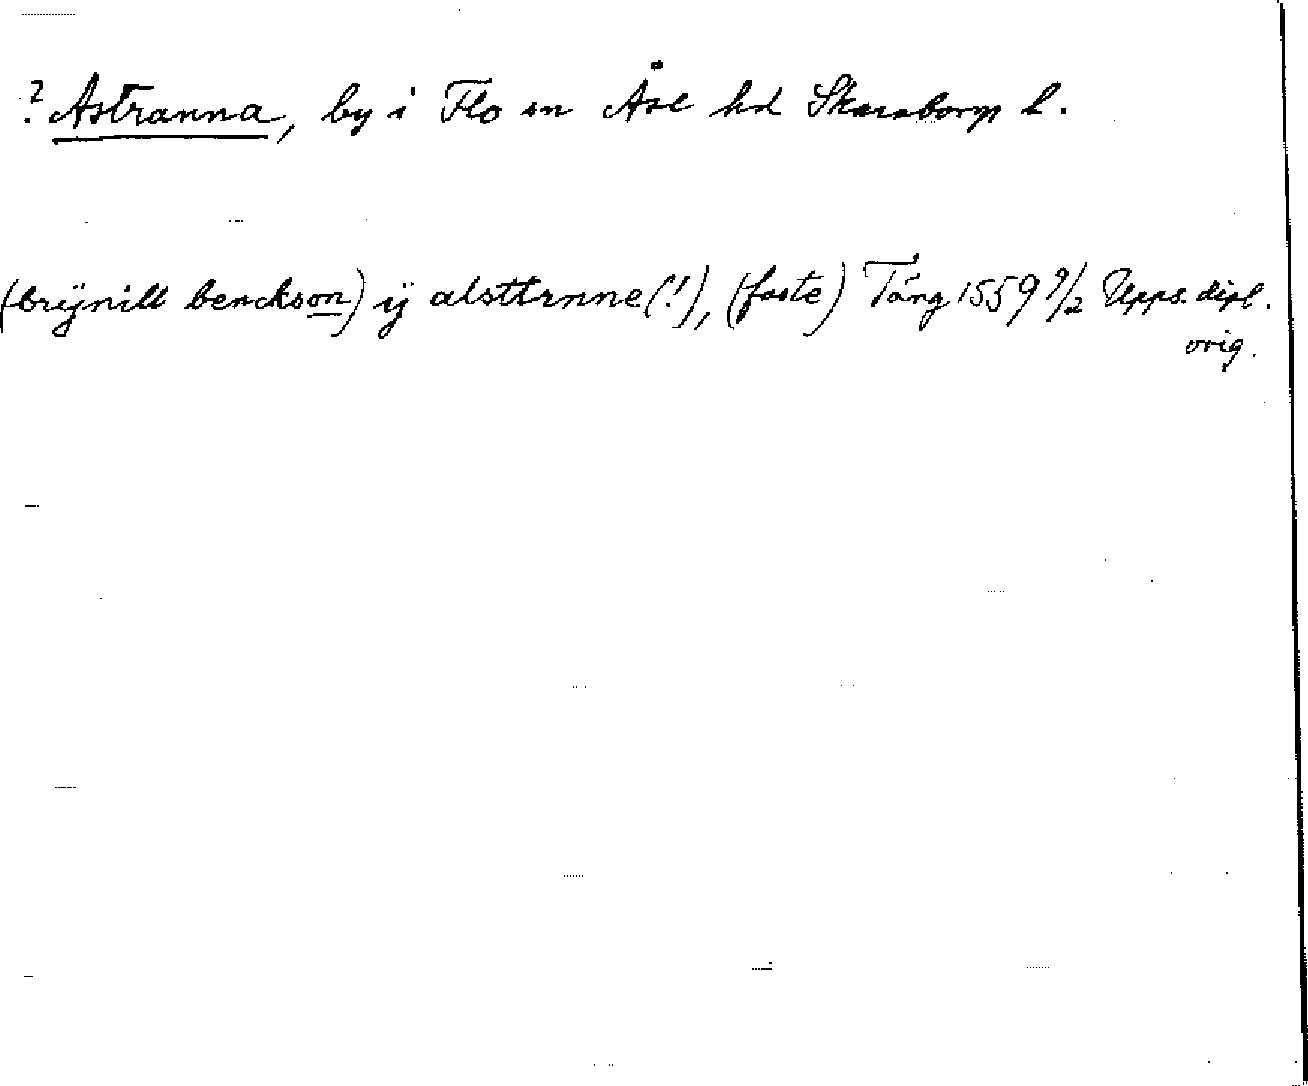 ? Astranna, by i Flo sn Åse hd Skaraborgs l.
(brÿnill benckson) ÿ alsttrnne(!), (faste) Täng 1559 9/2 Upps. dipl.
orig.